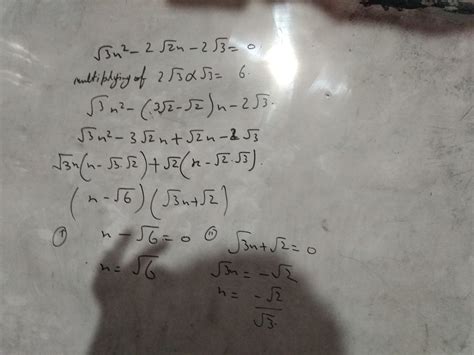 √3n² - 2√2n - 2√3 = 0
multiplying of 2√3 α √3 = 6.
√3n² - (3√2 - √2)n - 2√3.
√3n² - 3√2n + √2n - 2√3
√3n(n - √3·√2) + √2(n - √2·√3).
(n - √6)(√3n + √2)
(i) n - √6 = 0 (ii) √3n + √2 = 0
n = √6 √3n = -√2
n = -√2/√3.